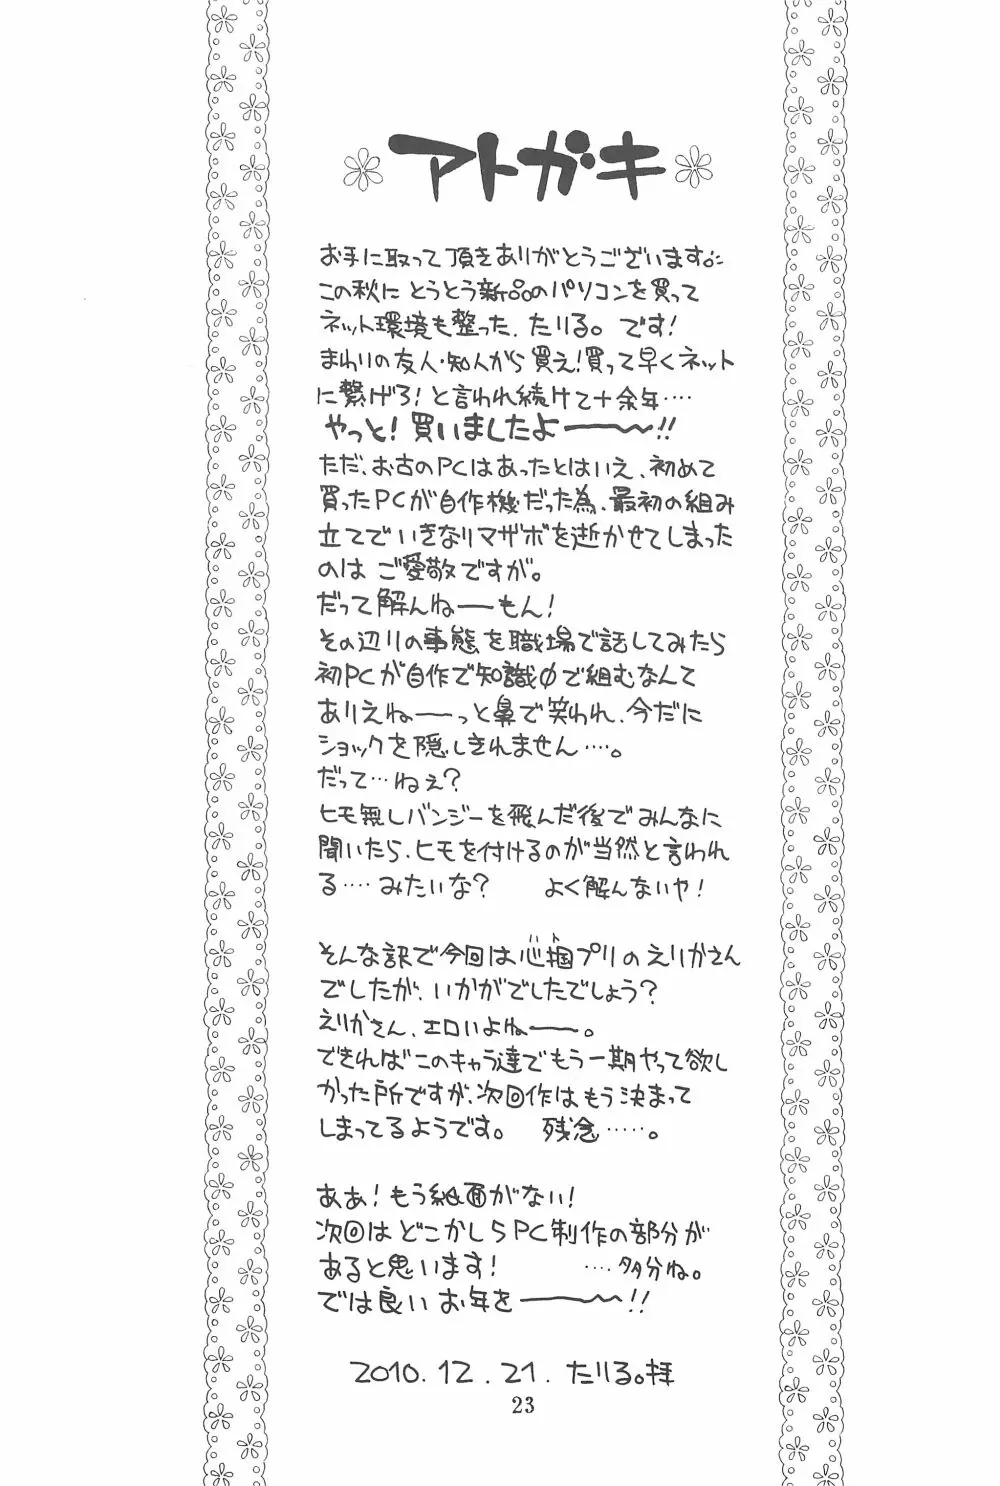 アトガキ
お手に取って頂きありがとうございます。
この秋に とうとう新品のパソコンを買って
ネット環境も整った、たりる。です!
まわりの友人・知人から 買え!買って早くネット
に繋げろ!と言われ続けて十余年‥‥
やっと!買いましたよ――〜!!
ただ、お古のPCはあったとはいえ、初めて
買ったPCが自作機だった為、最初の組み
立てでいきなりマザボを逝かせてしまった
のは ご愛敬ですが。
だって解んね――もん!
その辺りの事態を職場で話してみたら
初PCが自作で知識0で組むなんて
ありえね――っと鼻で笑われ、今だに
ショックを隠しきれません‥‥。
だって‥ねぇ?
ヒモ無しバンジーを飛んだ後でみんなに
聞いたら、ヒモを付けるのが当然と言われ
る‥‥みたいな? よく解んないヤ!
そんな訳で今回は心掴プリのえりかさん
ハート
でしたが、いかがでしたでしょう?
えりかさん、エロいよね――。
できればこのキャラ達でもう一期やって欲し
かった所ですが、次回作はもう決まって
しまってるようです。 残念‥‥‥。
ああ!もう紙面がない!
次回はどこかしらPC制作の部分が
あると思います! ‥‥多分ね。
では良いお年を――〜!!
2010.12.21.たりる。拝
23